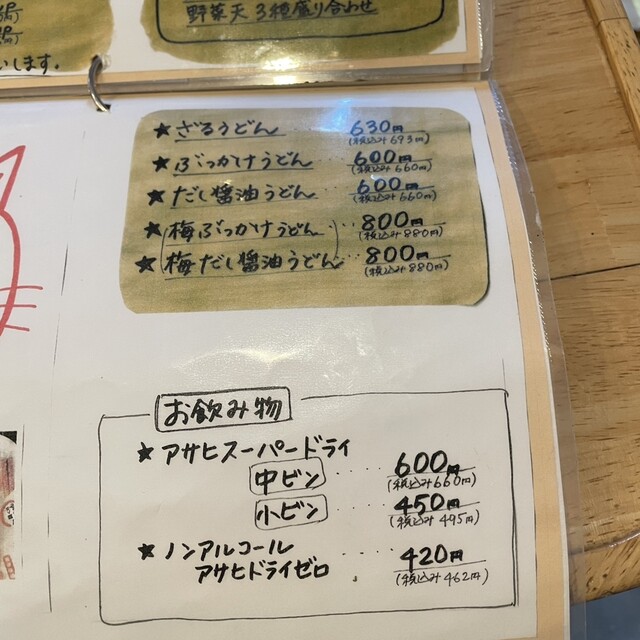 野菜天 3種盛り合わせ
します。
★ ざるうどん 630円
(税込み693円)
★ ぶっかけうどん 600円
(税込み660円)
★ だし醤油うどん 600円
(税込み660円)
★ 梅ぶっかけうどん 800円
(税込み880円)
★ 梅だし醤油うどん 800円
(税込み880円)
お飲み物
★ アサヒスーパードライ
中ビン ・・・・ 600円
(税込み660円)
小ビン ・・・・ 450円
(税込み495円)
★ ノンアルコール ・・・・ 420円
アサヒドライゼロ (税込み462円)